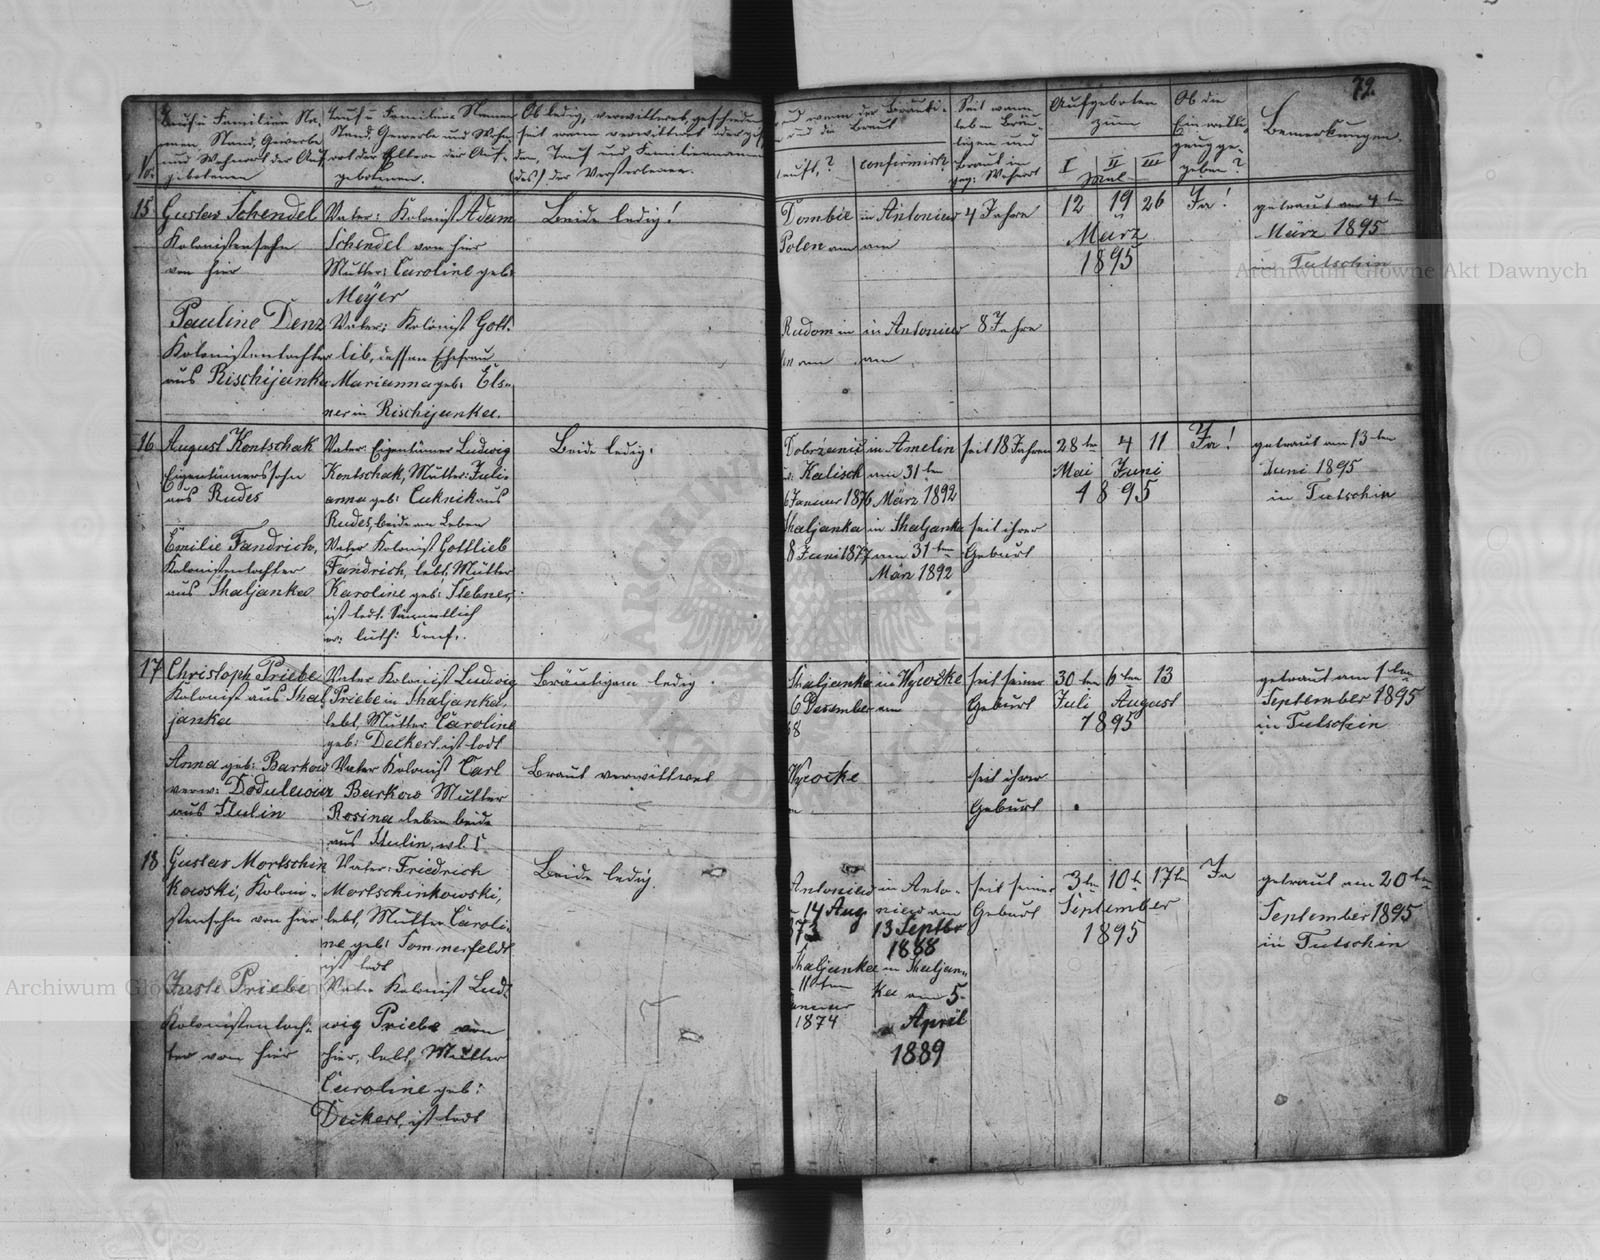 72.
Tauf u Familien Na-
men, Stand, Gewerbe
und Wohnort der Auf-
gebotenen
No.
Tauf u Familien Namen
Stand, Gewerbe und Wohn-
ort der Eltern der Auf-
gebotenen.
Ob ledig, verwittwet, geschieden
seit wann verwittwet oder
Tauf und Familiennamen
(des) der Verstorbenen.
und wann der Bräuti-
und die Braut
tauft,? confirmirt?
Seit wann
leben Bräu-
tigam und
Braut in
Wohnort
Aufgeboten
zum
I II III
Mal
Ob die
Einwilli-
gung ge-
geben?
Bemerkungen.
15
Gustav Schendel
Kolonistensohn
von hier
Pauline Denz
Kolonistentochter
aus Rischijanka
Vater: Kolonist Adam
Schendel von hier
Mutter: Caroline geb:
Meÿer
Vater: Kolonist Gott-
lib, dessen Ehefrau
Marianna geb: Els-
ner in Rischijanka.
Beide ledig!
Dombie in Antoniew 4 Jahre
Polen am am
Radom in in Antoniew 8 Jahre
am am
12 19 26
März
1895
Ja!
getraut am 4ten
März 1895
in Tutschin
16
August Kontschak
Eigentümerssohn
aus Rudes
Emilie Fandrich,
Kolonistentochter
aus Shaljanka
Vater Eigentümer Ludwig
Kontschak, Mutter: Juli-
anna geb: Cuknik aus
Rudes, beide am Leben
Vater Kolonist Gottlieb
Fandrich, lebt, Mutter
Karoline geb: Stebner,
ist todt. Sämmtlich
ev: luth: Conf.
Beide ledig.
in Amelin seit 18 Jahren
Kalisch am 31ten
6 Januar 1876 März 1892
Shaljanka in Shaljanka seit ihrer
8 Juni 1877 am 31ten Geburt
März 1892
28ten 4 11
Mai Juni
1895
Ja!
getraut am 13ten
Juni 1895
in Tutschin
17
Christoph Priebe
Kolonist aus Shal-
janka
Anna geb: Barkow
verw:
aus Stulin
Vater Kolonist Ludwig
Priebe in Shaljanka,
lebt, Mutter Caroline
geb: Deckert ist todt
Vater Kolonist Carl
Barkow Mutter
Rosina leben beide
aus Stulin,
Bräutigam ledig
Braut verwittwet
Shaljanka in Wycocke seit seiner
6 Dezember am Geburt
68
Wycocke seit ihrer
Geburt
30ten 6ten 13
Juli August
1895
getraut am 1ten
September 1895
in Tutschin
18
Gustav Mortschin
kowski, Koloni-
stensohn von hier
Juste Priebe
Kolonistentoch-
ter von hier
Vater: Friedrich
Mortschinkowski,
lebt, Mutter Caroli-
ne geb: Sommerfeldt
ist todt
Vater Kolonist Lud-
wig Priebe von
hier, lebt, Mutter
Caroline geb:
Deckert, ist todt
Beide ledig.
Antoniew in Anto- seit seiner
14 Aug niew am Geburt
873 13 Septbr
1888
Shaljanka in Shaljan-
11ten ka am 5.
1874 April
1889
3ten 10t 17ten
September
1895
Ja
getraut am 20ten
September 1895
in Tutschin
Archiwum Główne Akt Dawnych
Archiwum Główne Akt Dawnych